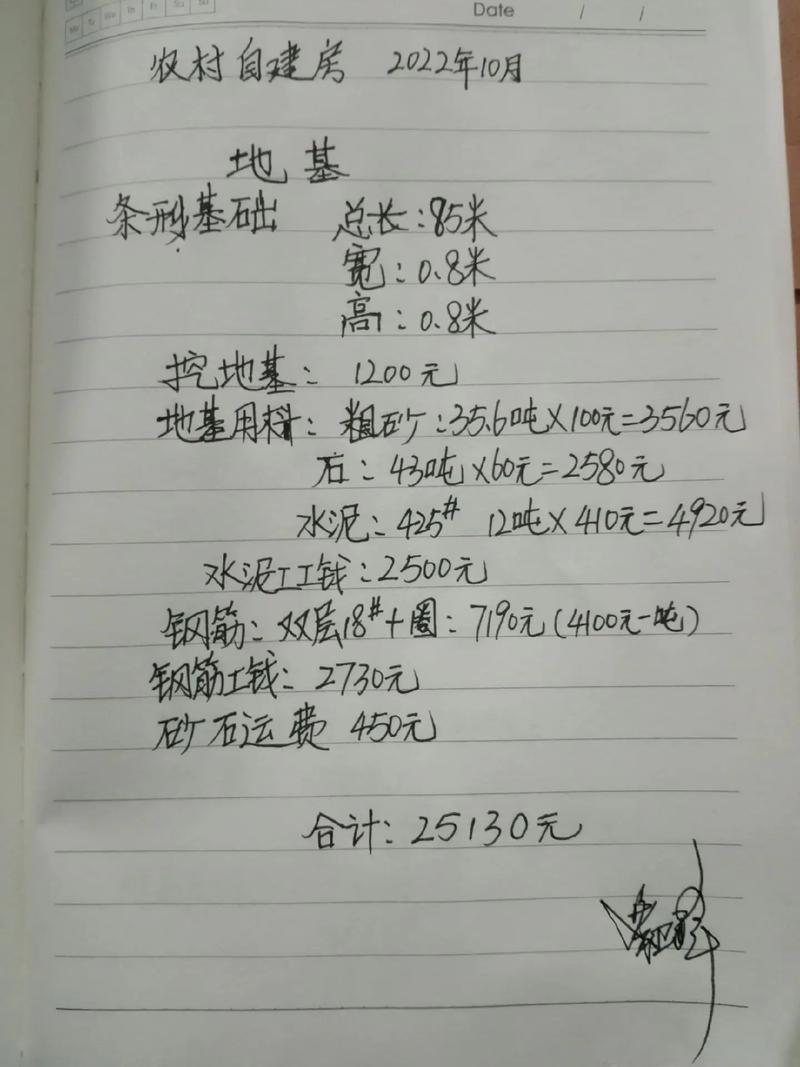 Date / /
Mo Tu We Th Fr Sa Su
农村自建房 2022年10月
地基
条形基础 总长:85米
宽:0.8米
高:0.8米
挖地基: 1200元
地基用料: 粗砂:35.6吨×100元=3560元
石:43吨×60元=2580元
水泥:425# 12吨×410元=4920元
水泥工工钱:2500元
钢筋:双层18#+圈:7190元(4100元一吨)
钢筋工钱:2730元
砂石运费 450元
合计:25130元